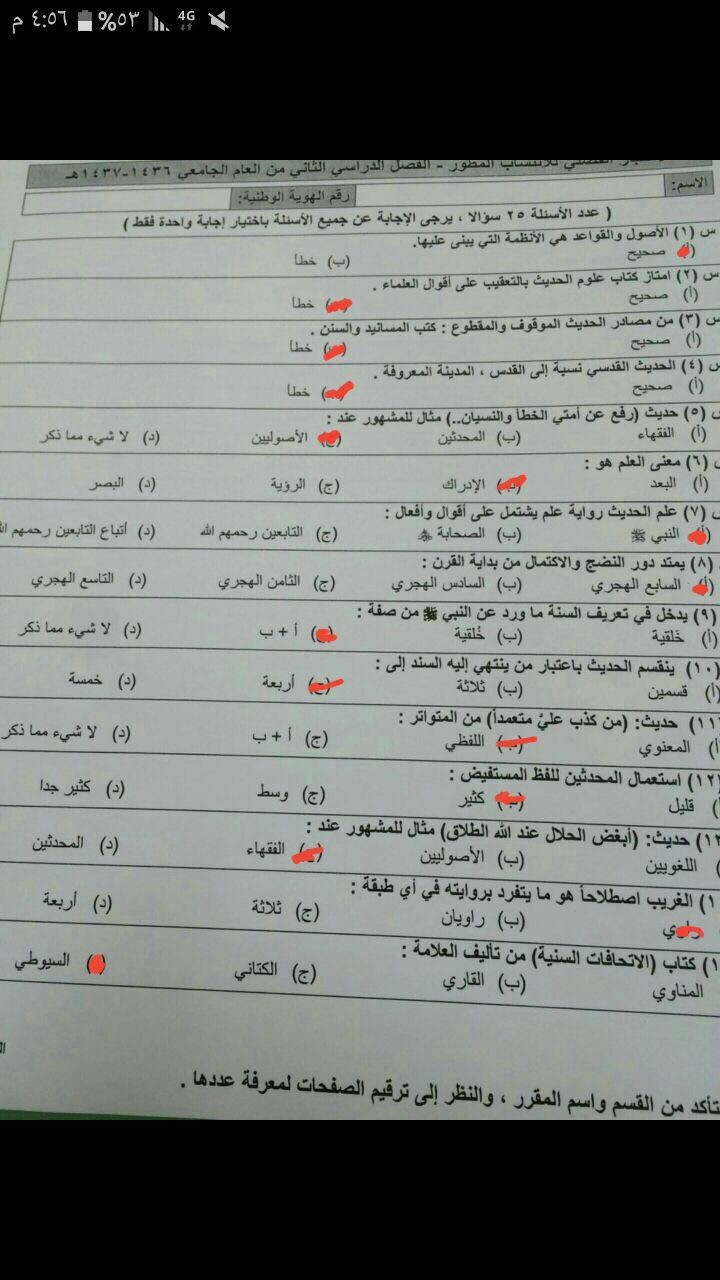 ٤:٥٦ م ٥٣% 4G
الفصلي للانتساب المطور - الفصل الدراسي الثاني من العام الجامعي ١٤٣٦-١٤٣٧هـ
الاسم: رقم الهوية الوطنية:
( عدد الأسئلة ٢٥ سؤالا ، يرجى الإجابة عن جميع الأسئلة باختيار إجابة واحدة فقط )
س (١) الأصول والقواعد هي الأنظمة التي يبنى عليها.
(أ) صحيح (ب) خطأ
س (٢) امتاز كتاب علوم الحديث بالتعقيب على أقوال العلماء .
(أ) صحيح خطأ
س (٣) من مصادر الحديث الموقوف والمقطوع : كتب المسانيد والسنن .
(أ) صحيح خطأ
س (٤) الحديث القدسي نسبة إلى القدس ، المدينة المعروفة .
(أ) صحيح خطأ
س (٥) حديث (رفع عن أمتي الخطأ والنسيان..) مثال للمشهور عند :
(أ) الفقهاء (ب) المحدثين (ج) الأصوليين (د) لا شيء مما ذكر
س (٦) معنى العلم هو :
(أ) البعد (ب) الإدراك (ج) الرؤية (د) البصر
س (٧) علم الحديث رواية علم يشتمل على أقوال وأفعال :
(أ) النبي ﷺ (ب) الصحابة (ج) التابعين رحمهم الله (د) أتباع التابعين رحمهم
(٨) يمتد دور النضج والاكتمال من بداية القرن :
(أ) السابع الهجري (ب) السادس الهجري (ج) الثامن الهجري (د) التاسع الهجري
(٩) يدخل في تعريف السنة ما ورد عن النبي ﷺ من صفة :
(أ) خَلقية (ب) خُلقية أ + ب (د) لا شيء مما ذكر
(١٠) ينقسم الحديث باعتبار من ينتهي إليه السند إلى:
(أ) قسمين (ب) ثلاثة (ج) أربعة (د) خمسة
(١١) حديث: (من كذب عليَّ متعمداً) من المتواتر :
أ) المعنوي (ب) اللفظي (ج) أ + ب (د) لا شيء مما ذكر
١٢) استعمال المحدثين للفظ المستفيض :
) قليل (ب) كثير (ج) وسط (د) كثير جدا
) حديث: (أبغض الحلال عند الله الطلاق) مثال للمشهور عند :
) اللغويين (ب) الأصوليين (ج) الفقهاء (د) المحدثين
) الغريب اصطلاحاً هو ما يتفرد بروايته في أي طبقة :
(ب) راويان (ج) ثلاثة (د) أربعة
) كتاب (الاتحافات السنية) من تأليف العلامة :
المناوي (ب) القاري (ج) الكتاني السيوطي
تأكد من القسم واسم المقرر ، والنظر إلى ترقيم الصفحات لمعرفة عددها .